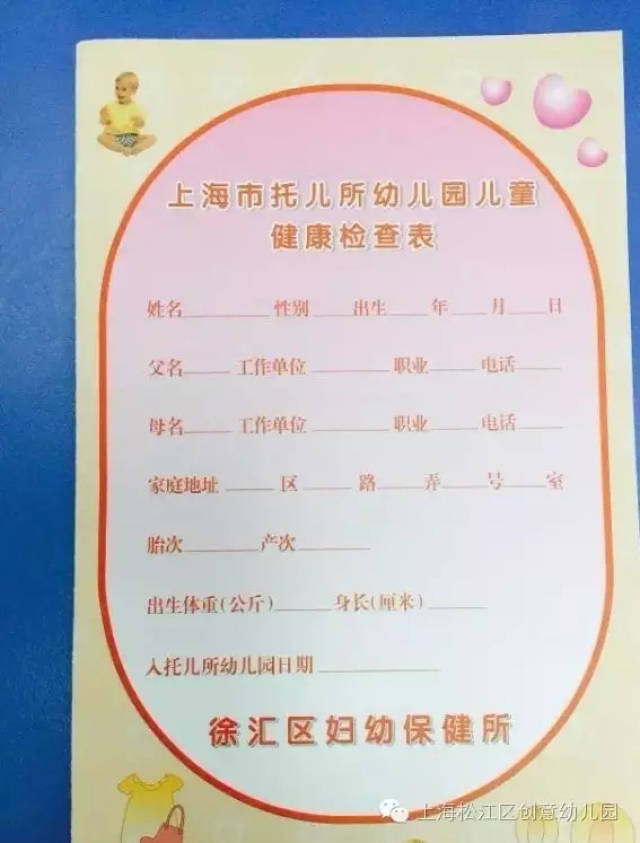 上海市托儿所幼儿园儿童
健康检查表
姓名________ 性别____出生____年____月____日
父名____ 工作单位________ 职业____ 电话____
母名____ 工作单位________ 职业____ 电话____
家庭地址____区____路____弄____号____室
胎次______产次______
出生体重(公斤)_____身长(厘米)_____
入托儿所幼儿园日期__________
徐汇区妇幼保健所
上海松江区创意幼儿园